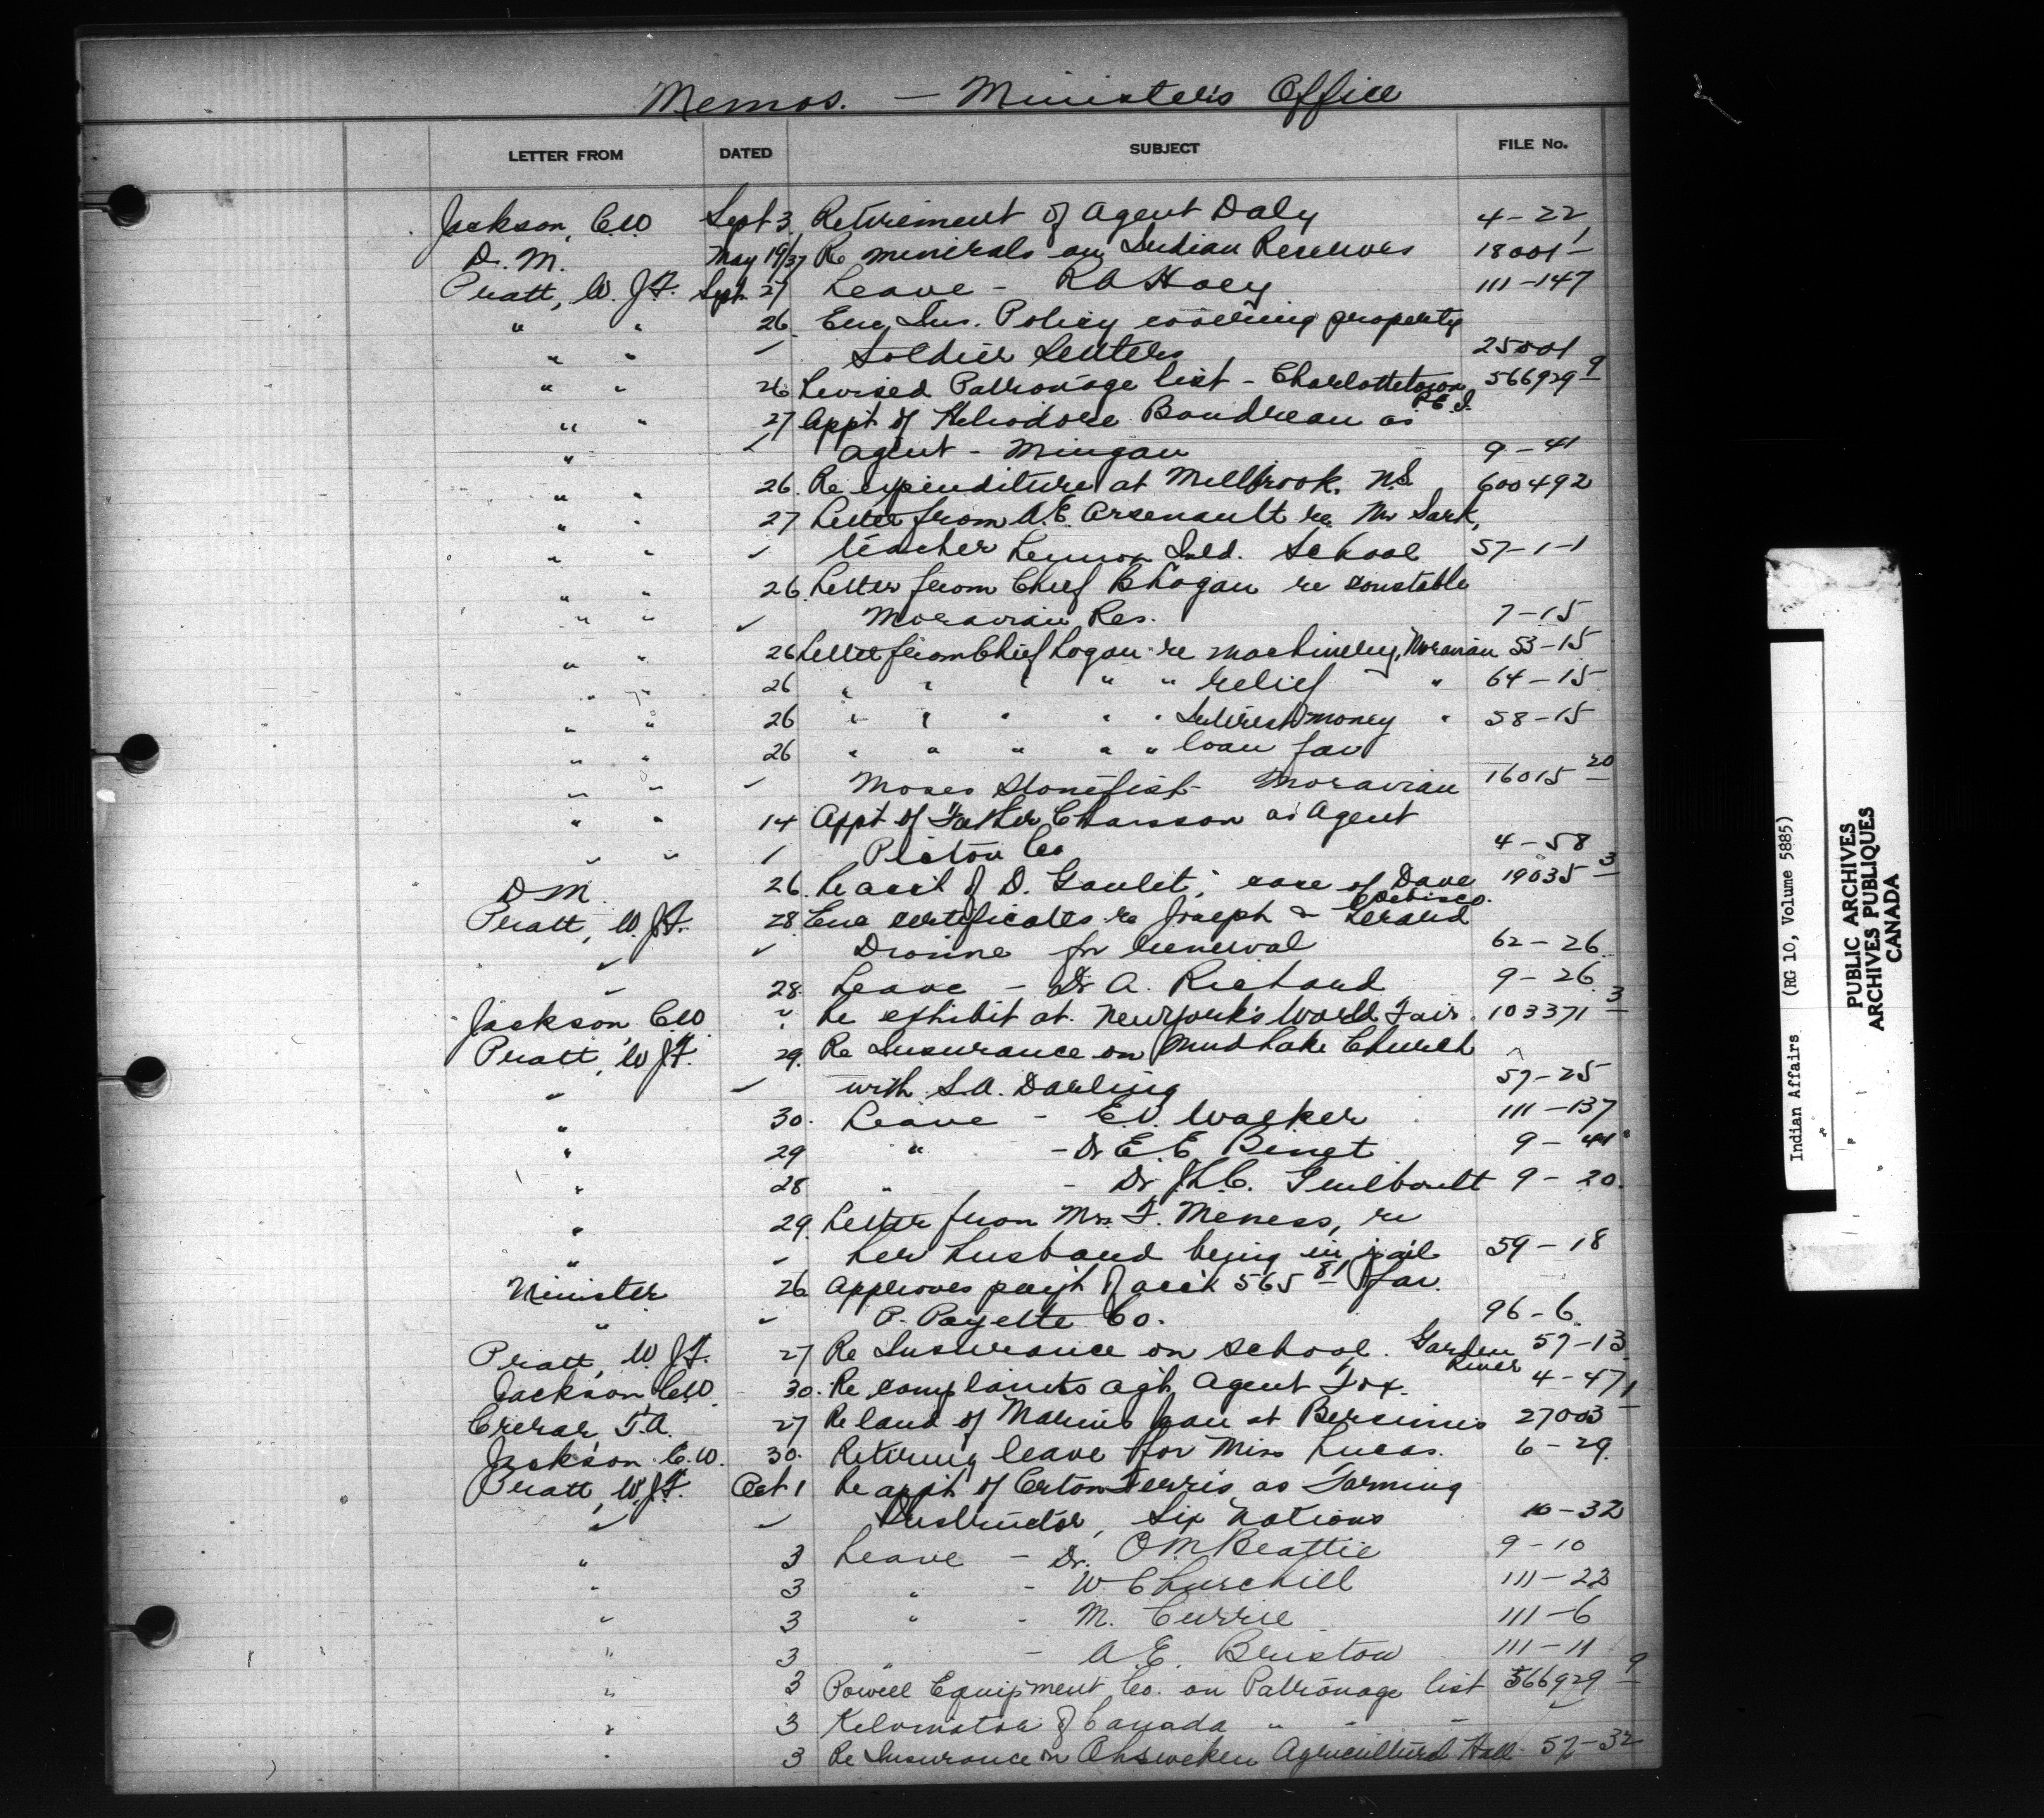 Memos. — Minister's Office
LETTER FROM DATED SUBJECT FILE No.
Jackson, C.W. Sept 3 Retirement of Agent Daly 4-22-1
D.M. May 19/37 Re minerals on Indian Reserves 18001-
Pratt, W.J.F. Sept. 27 Leave - R A Hoey 111-147
" " 26 Enc. Ins. Policy covering property
" " ✓ Soldier Settlers 25001
" " 26 Revised Patronage list - Charlottetown P.E.I. 566929-9
" " 27 Appt of Heliodore Boudreau as
" ✓ agent - Mingan 9-41
" " 26 Re expenditure at Millbrook, N.S. 600492
" " 27 Letter from A.E. Arsenault re Mr Sark,
" " ✓ teacher Lennox Isld. School 57-1-1
" " 26 Letter from Chief Logan re constable
" " ✓ Moravian Res. 7-15
" " 26 Letter from Chief Logan re machinery, Moravian 53-15
" " 26 " " " " " relief " 64-15
" " 26 " " " " " Interest money " 58-15
" " 26 " " " " " loan for
" " ✓ Moses Stonefish - Moravian 16015-20
" " 14 Appt of Father Chiasson as Agent
" " ✓ Pictou Co 4-58
D.M. 26 Re acct of D. Goulet; case of Dave 19035-3
Pratt, W.J.F. 28 Enc certificates re Joseph &
✓ ✓ for renewal 62-26
" 28 Leave - Dr A. Richard 9-26
Jackson, C.W. " Re exhibit at New York's World Fair 103371-3
Pratt, W.J.F. 29 Re Insurance on Mud Lake Church
" ✓ with S.A. Darling 57-25
" 30 Leave - E.V. Walker 111-137
" 29 " - Dr E. E. Binet 9-41
" 28 " - Dr J.L.C. Guilboult 9-20
" 29 Letter from Mrs F. Meness, re
" ✓ her husband being in jail 59-18
Minister 26 Approves pay't of acct 565 81 for
" ✓ P. Payette Co. 96-6
Pratt, W.J.F. 27 Re Insurance on school. Garden River 57-13
Jackson C.W. 30 Re complaints agt. Agent Fox. 4-47-1
Crerar, T.A. 27 Re land of at Bersimis 27003
Jackson C.W. 30 Retiring leave for Miss Lucas. 6-29
Pratt, W.J.F. Oct 1 Re appt of Ferris as Farming
" ✓ Instructor, Six Nations 10-32
" 3 Leave - Dr. O M Beattie 9-10
" 3 " - W Churchill 111-22
" 3 " - M. Currie 111-6
" 3 " - A.E. Bristow 111-11
" 3 Powell Equipment Co. on Patronage list 566929-9
" 3 Kelvinator of Canada " " " ✓
" 3 Re Insurance on Ohsweken Agricultural Hall 57-32
Indian Affairs (RG 10, Volume 5885)
PUBLIC ARCHIVES
ARCHIVES PUBLIQUES
CANADA